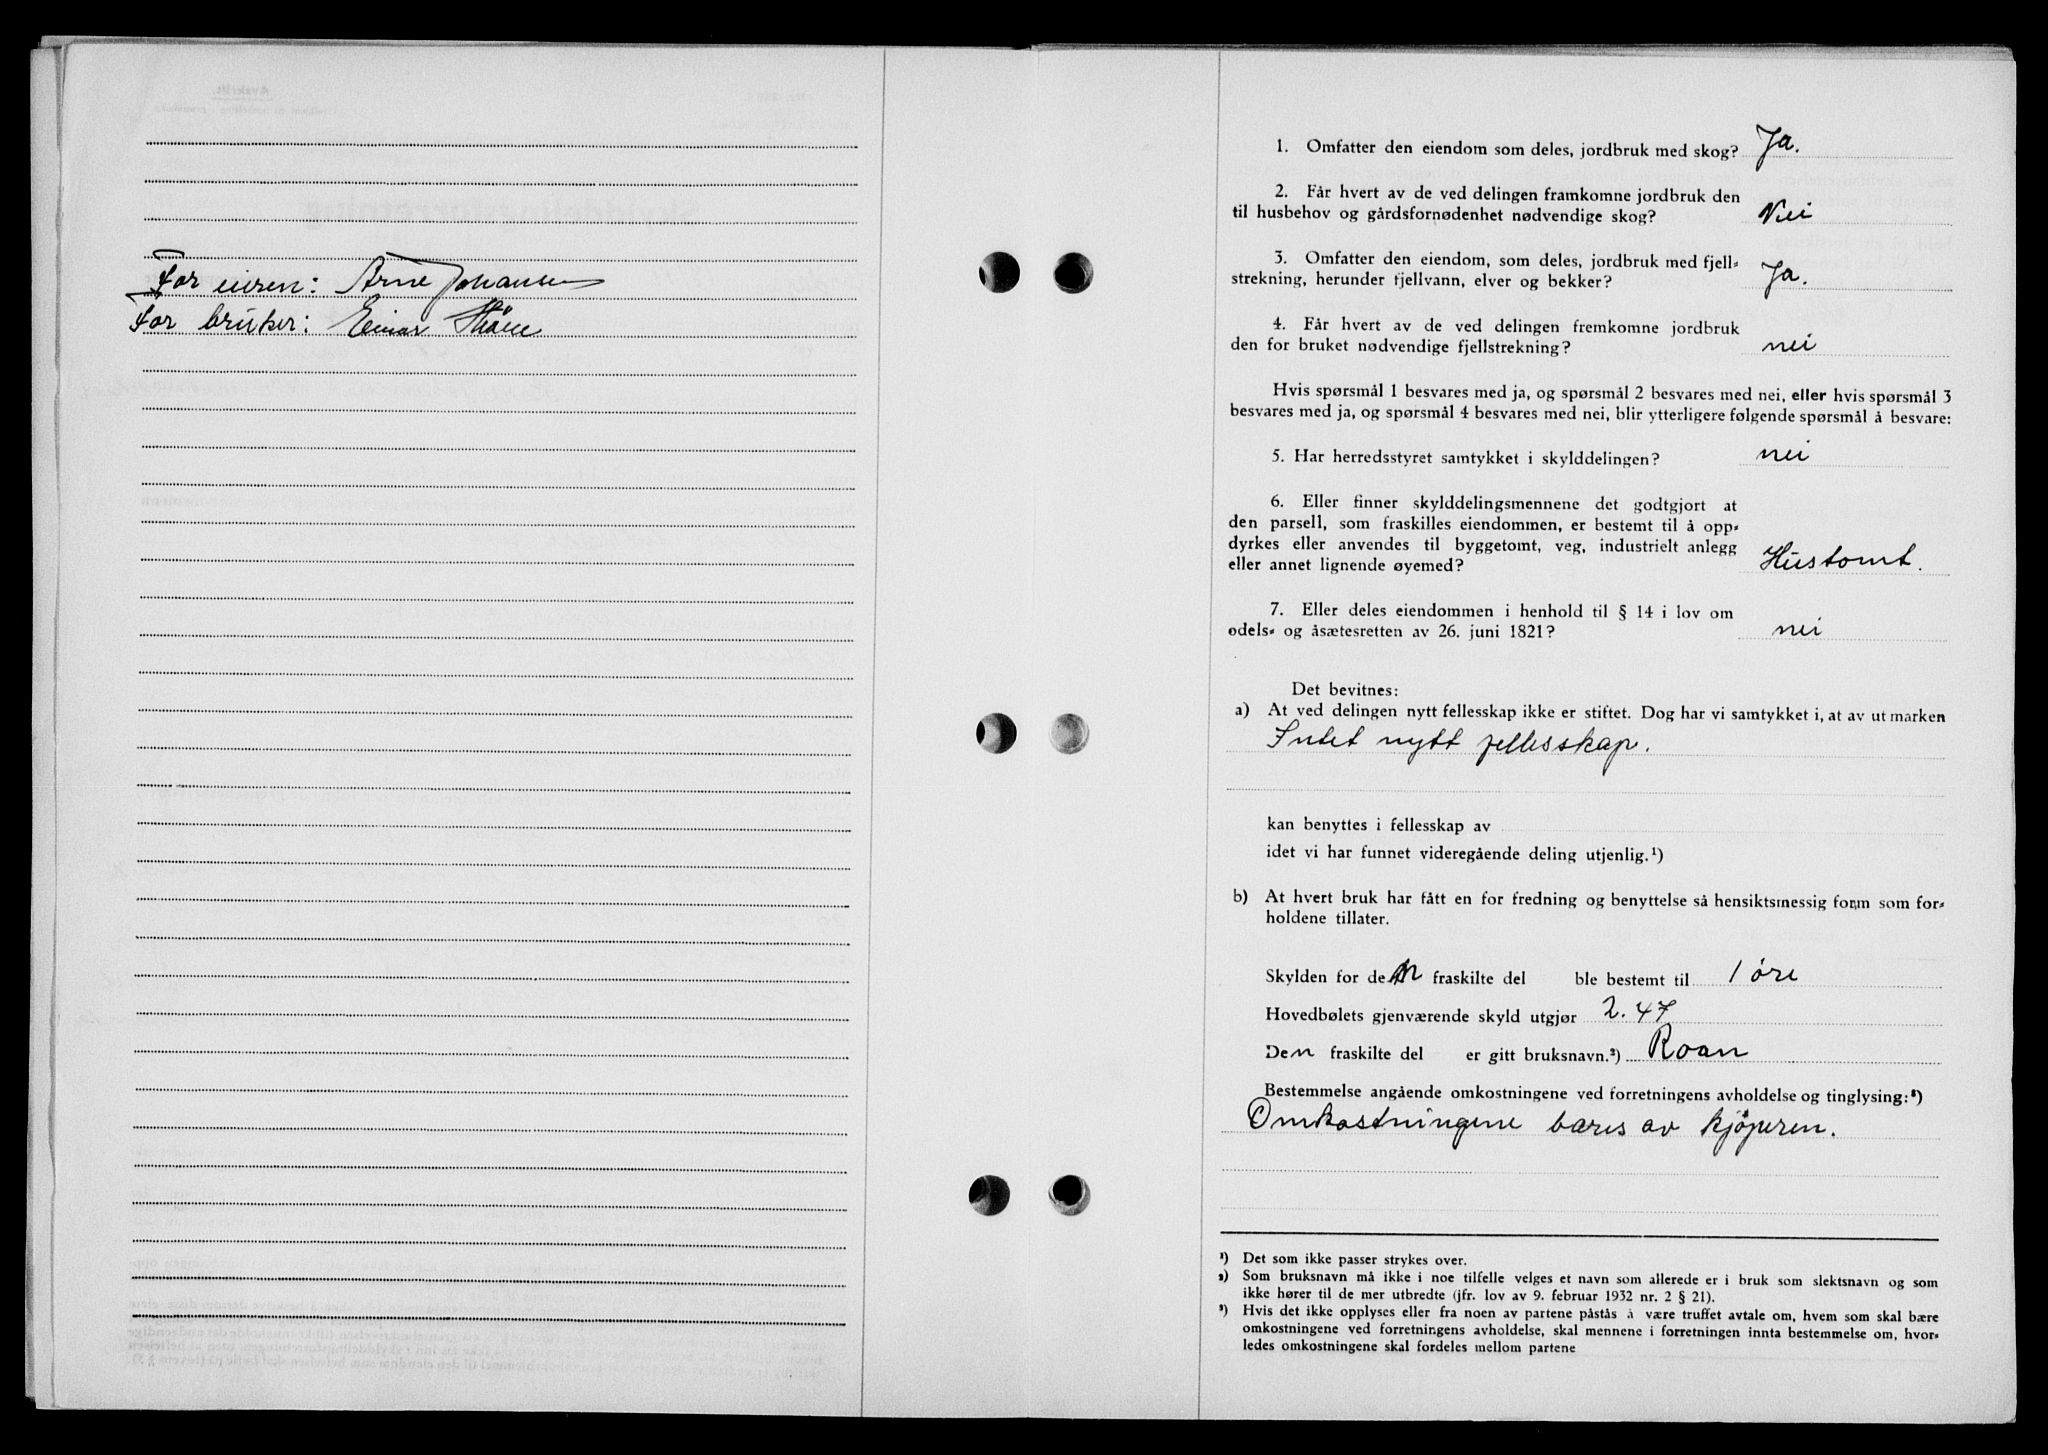 For eieren: Arne Johansen
For bruker: Einar
1. Omfatter den eiendom som deles, jordbruk med skog? Ja.
2. Får hvert av de ved delingen framkomne jordbruk den
til husbehov og gårdsfornødenhet nødvendige skog? Nei
3. Omfatter den eiendom, som deles, jordbruk med fjell-
strekning, herunder fjellvann, elver og bekker? Ja.
4. Får hvert av de ved delingen fremkomne jordbruk
den for bruket nødvendige fjellstrekning? nei
Hvis spørsmål 1 besvares med ja, og spørsmål 2 besvares med nei, eller hvis spørsmål 3
besvares med ja, og spørsmål 4 besvares med nei, blir ytterligere følgende spørsmål å besvare:
5. Har herredsstyret samtykket i skylddelingen? nei
6. Eller finner skylddelingsmennene det godtgjort at
den parsell, som fraskilles eiendommen, er bestemt til å opp-
dyrkes eller anvendes til byggetomt, veg, industrielt anlegg
eller annet lignende øyemed? Hustomt.
7. Eller deles eiendommen i henhold til § 14 i lov om
odels- og åsætesretten av 26. juni 1821? nei
Det bevitnes:
a) At ved delingen nytt fellesskap ikke er stiftet. Dog har vi samtykket i, at av utmarken
Intet nytt fellesskap.
kan benyttes i fellesskap av
idet vi har funnet videregående deling utjenlig.¹)
b) At hvert bruk har fått en for fredning og benyttelse så hensiktsmessig form som for-
holdene tillater.
Skylden for den fraskilte del ble bestemt til 1 öre
Hovedbølets gjenværende skyld utgjør 2.47
Den fraskilte del er gitt bruksnavn.²) Roan
Bestemmelse angående omkostningene ved forretningens avholdelse og tinglysing:³)
Omkostningene bæres av kjöperen.
¹) Det som ikke passer strykes over.
²) Som bruksnavn må ikke i noe tilfelle velges et navn som allerede er i bruk som slektsnavn og som
ikke hører til de mer utbredte (jfr. lov av 9. februar 1932 nr. 2 § 21).
³) Hvis det ikke opplyses eller fra noen av partene påstås å være truffet avtale om, hvem som skal bære
omkostningene ved forretningens avholdelse, skal mennene i forretningen innta bestemmelse om, hvor-
ledes omkostningene skal fordeles mellom partene